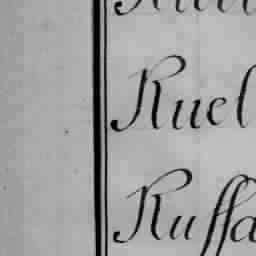 Ruel
Ruffa